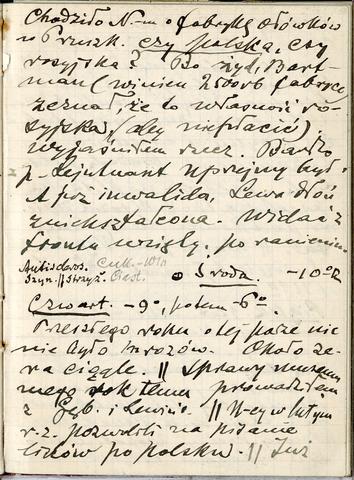 Chodziło N-m o fabrykę ołówków
w Pruszk. czy polska, czy
rosyjska? Bo żyd, Bart
man (winien 2500 rb fabryce
zeznał, że to własność ro-
syjska, (aby nie płacić).
Wyjaśniłem rzecz. Bardzo
p. Lejtnant uprzejmy był.
A poż inwalida, Lewa dłoń
zniekształcona. Widać z
frontu wzięty, po ranieniu.
Antisclaros. Cuk. -10 r.
Szyn. || Strzyż. Ciast. Środa. -10° R
Czwart. -9°, potem -6°
Przeszłego roku o tej porze nie
nie było mrozów. Około ze-
ra ciągle. || Sprawy
rok temu prowadziłem
z Gęb. i Lewins. || N-cy w lutym
r. z. pozwolili na pisanie
listów po polsku. || Już